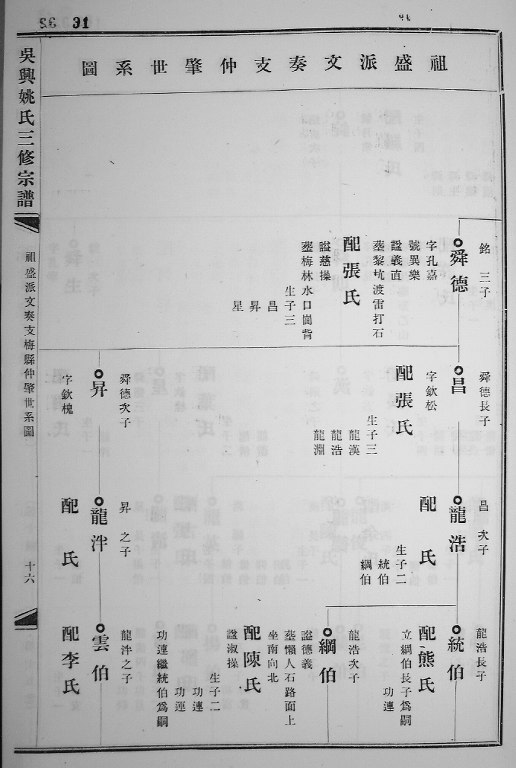 31
祖盛派文奏支仲肇世系圖
吳興姚氏三修宗譜
祖盛派文奏支梅縣仲肇世系圖
十六
銘 三子
舜德
字孔嘉
號異樂
諡義直
塟黎坑渡雷打石
配張氏
諡慈操
塟梅林水口崗背
生子三
昌
昇
星
舜德長子
昌
字欽松
配張氏
生子三
龍漢
龍浩
龍淵
舜德次子
昇
字欽槐
昌 次子
龍浩
配 氏
生子二
統伯
綱伯
昇 之子
龍泮
配 氏
龍浩長子
統伯
配熊氏
立綱伯長子爲嗣
功連
龍浩次子
綱伯
諡德義
塟懶人石路面上
坐南向北
配陳氏
諡淑操
生子二
功連
功連
功連繼統伯爲嗣
龍泮之子
雲伯
配李氏